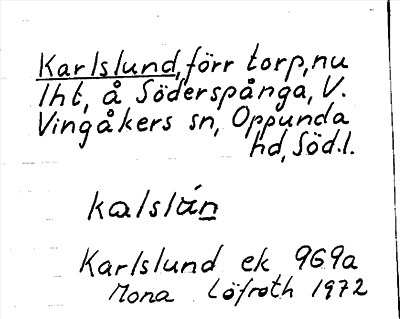 Karlslund, förr torp, nu
lht, å Söderspånga, V.
Vingåkers sn, Oppunda
hd, Söd.l.
kalslán
Karlslund ek 969a
Mona Löfroth 1972